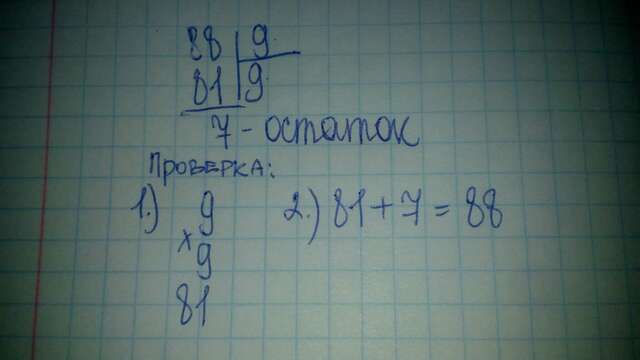 88 9
81 9
7 - остаток
Проверка:
1.) 9 2.) 81 + 7 = 88
× 9
81